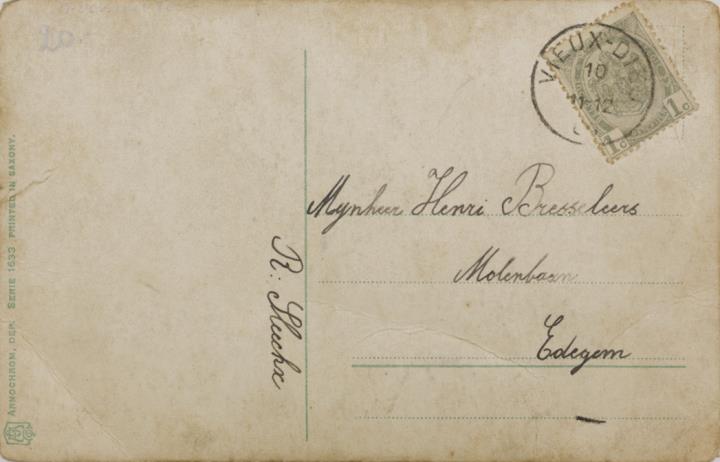 20
VIEUX-D
10
11-12
1c
1c
Mynheer Henri Bresseleers
Molenbaan
Edegem
ARNOCHROM, DEP. SERIE 1633 PRINTED IN SAXONY.